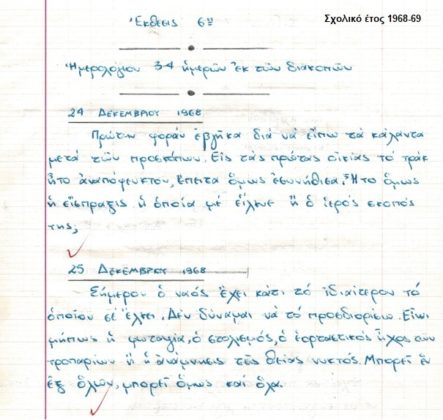 Ἔκθεσις 6η
Σχολικό έτος 1968-69
Ἡμερολόγιον 3-4 ἡμερῶν ἐκ τῶν διακοπῶν
24 ΔΕΚΕΜΒΡΙΟΥ 1968
Πρώτην φοράν ἐβγῆκα διά να εἴπω τά κάλαντα
μετά τῶν προσκόπων. Εἰς τάς πρώτας οἰκίας τό τράκ
ἦτο ἀναπόφευκτον, ἔπειτα ὅμως ἐσυνήθισα. Ἦτο ὅμως
ἡ εἴσπραξις ἡ ὁποία μέ εἵλκυε ἤ ὁ ἱερός σκοπός
της;
25 ΔΕΚΕΜΒΡΙΟΥ 1968
Σήμερον ὁ ναός ἔχει κάτι τό ἰδιαίτερον τό
ὁποῖον σέ ἕλκει. Δέν δύναμαι νά τό προσδιορίσω. Εἶναι
μήπως ἡ φωταψία, ὁ στολισμός, ὁ ἑορταστικός ἦχος τῶν
τροπαρίων ἤ ἡ ἀνάμνησις τῆς θείας νυκτός. Μπορεῖ ἕν
ἐξ ὅλων, μπορεῖ ὅμως καί ὅλα.